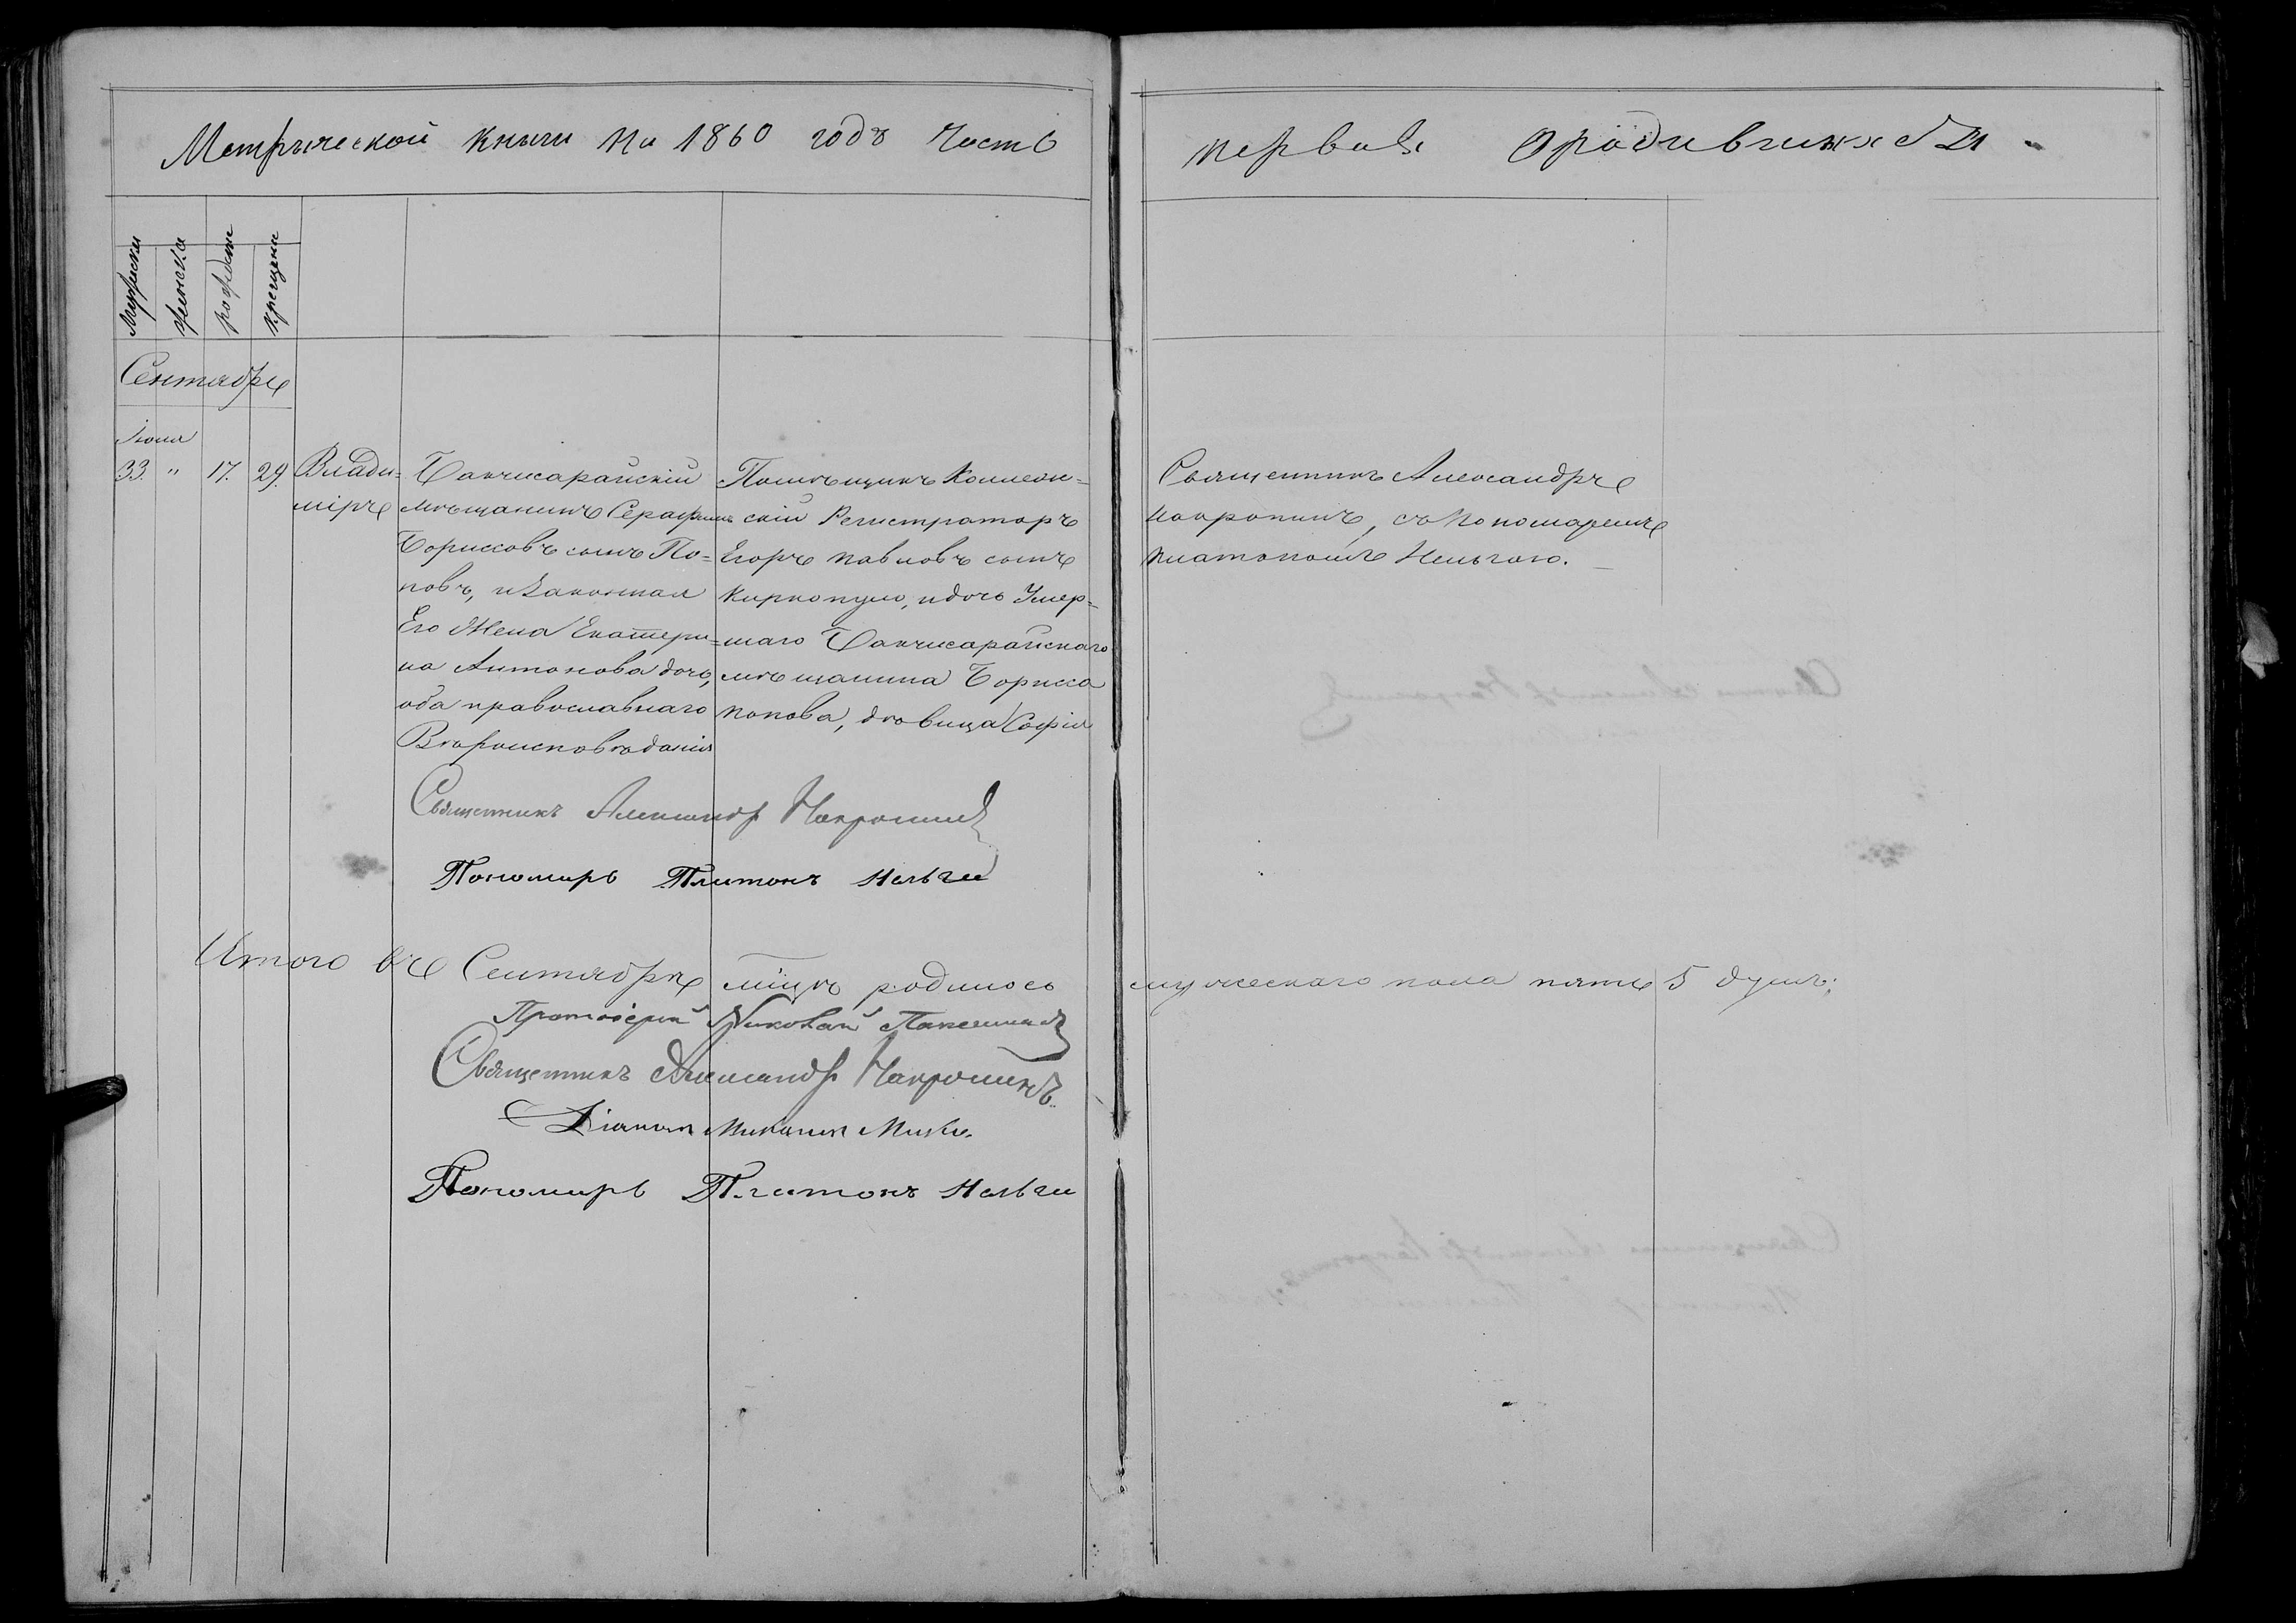 Метрической книги на 1860 годъ часть первая о родившихся
мужеска
женска
рожденіе
крещеніе
Сентябрь
33. " 17. 29. Влади=
міръ
Бахчисарайскій
мѣщанинъ Серафимъ
Борисовъ сынъ По=
повъ, и законная
Его Жена Екатери=
на Антонова дочь,
оба православнаго
Вѣроисповѣданія
Помѣщикъ Коллеж=
скій Регистраторъ
Егоръ Павловъ сынъ
Киркопуло, и дочь Умер=
шаго Бахчисарайскаго
мѣщанина Бориса
Попова, дѣвица Софія
Священникъ Александръ
, съ Пономаремъ
Платономъ Нельгою.
Священникъ Александръ
Пономарь Платонъ Нельга
Итого въ Сентябрѣ м̃цѣ родилось мужескаго пола пять 5 душъ:
Протоіерей Николай
Священникъ Александръ
Діаконъ Михаилъ
Пономарь Платонъ Нельга